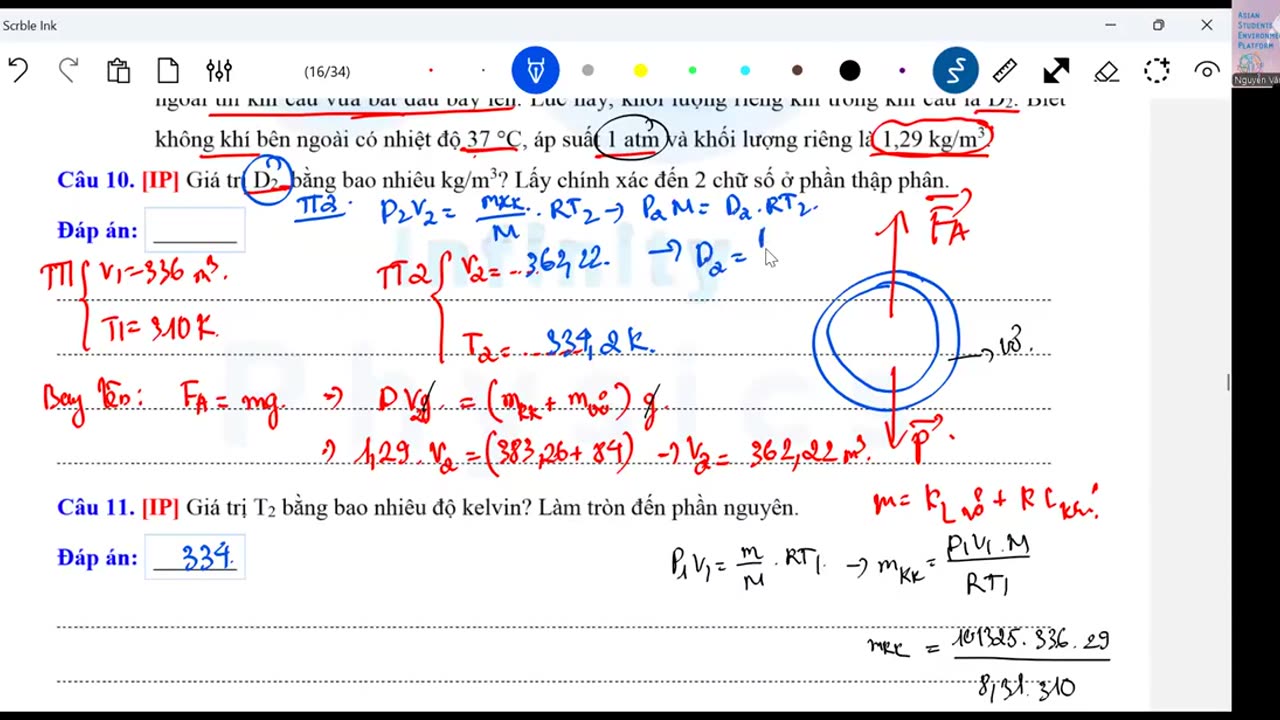 Scrble Ink
ASIAN
STUDENTS
ENVIRONME
PLATFORM
(16/34)
Nguyen Vă
ngoài thì khí cầu vừa bắt đầu bay lên. Lúc này, khối lượng riêng khí trong khí cầu là D₂. Biết
không khí bên ngoài có nhiệt độ 37 °C, áp suất 1 atm và khối lượng riêng là 1,29 kg/m³.
Câu 10. [IP] Giá trị D₂ bằng bao nhiêu kg/m³? Lấy chính xác đến 2 chữ số ở phần thập phân.
TT2: P₂V₂ = mKK/M . RT₂ → P₂M = D₂.RT₂.
Đáp án:
→ D₂ =
FA
TT1 { V₁ = 336 m³.
T₁ = 310 K.
TT2 { V₂ = 362,22.
T₂ = 334,2 K.
vỏ.
Bay lên: FA = mg. → DV₂g = (mKK + mvỏ) g.
→ 1,29. V₂ = (383,26 + 84) → V₂ = 362,22 m³.
P.
Infinity
Physics
Câu 11. [IP] Giá trị T₂ bằng bao nhiêu độ kelvin? Làm tròn đến phần nguyên.
Đáp án: 334.
P₁V₁ = m/M . RT₁. → mKK = P₁V₁.M/RT₁
mKK = 101325.336.29/8,31.310